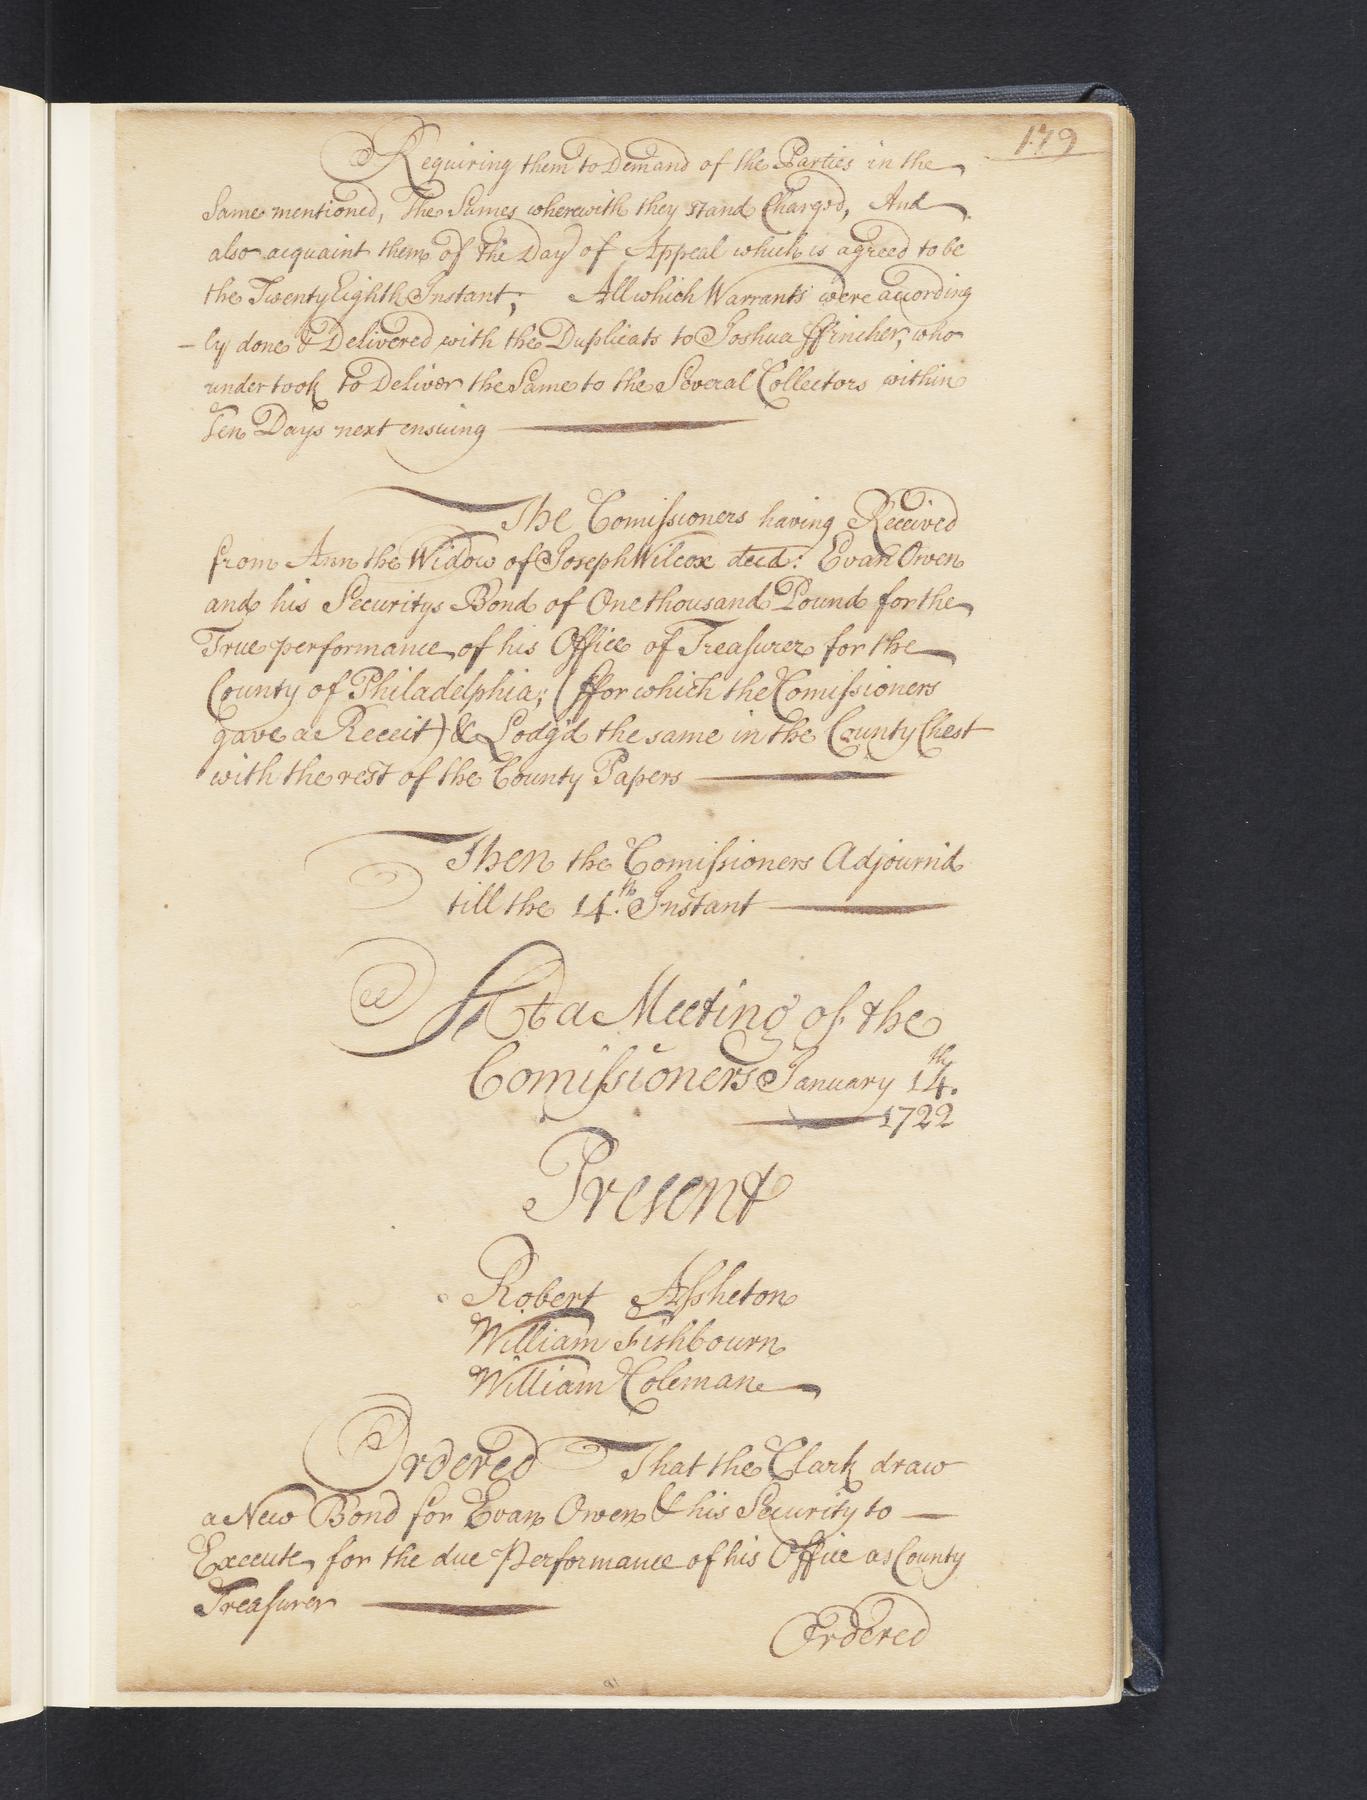 179
Requiring them to Demand of the Parties in the
Same mentioned, The Sumes wherewith they stand Charged, And
also acquaint them of the Day of Appeal which is agreed to be
the Twenty Eighth Instant; All which Warrants were according
-ly done & Delivered with the Duplicats to Joshua ffincher, who
undertook to Deliver the Same to the Several Collectors within
Ten Days next ensuing
The Comissioners having Received
from Ann the Widow of Joseph Wilcox decd: Evan Owen
and his Securitys Bond of One thousand Pound for the
True performance of his Office of Treasurer for the
County of Philadelphia; (ffor which the Comissioners
gave a Receit) & Lodg'd the same in the County Chest
with the rest of the County Papers
Then the Comissioners Adjourn'd
till the 14.th Instant
At a Meeting of the
Comissioners January 14.th
1722
Present
Robert Assheton
William Fishbourn
William Coleman
Ordered That the Clark draw
a New Bond for Evan Owen & his Security to
Execute for the due Performance of his Office as County
Treasurer
Ordered